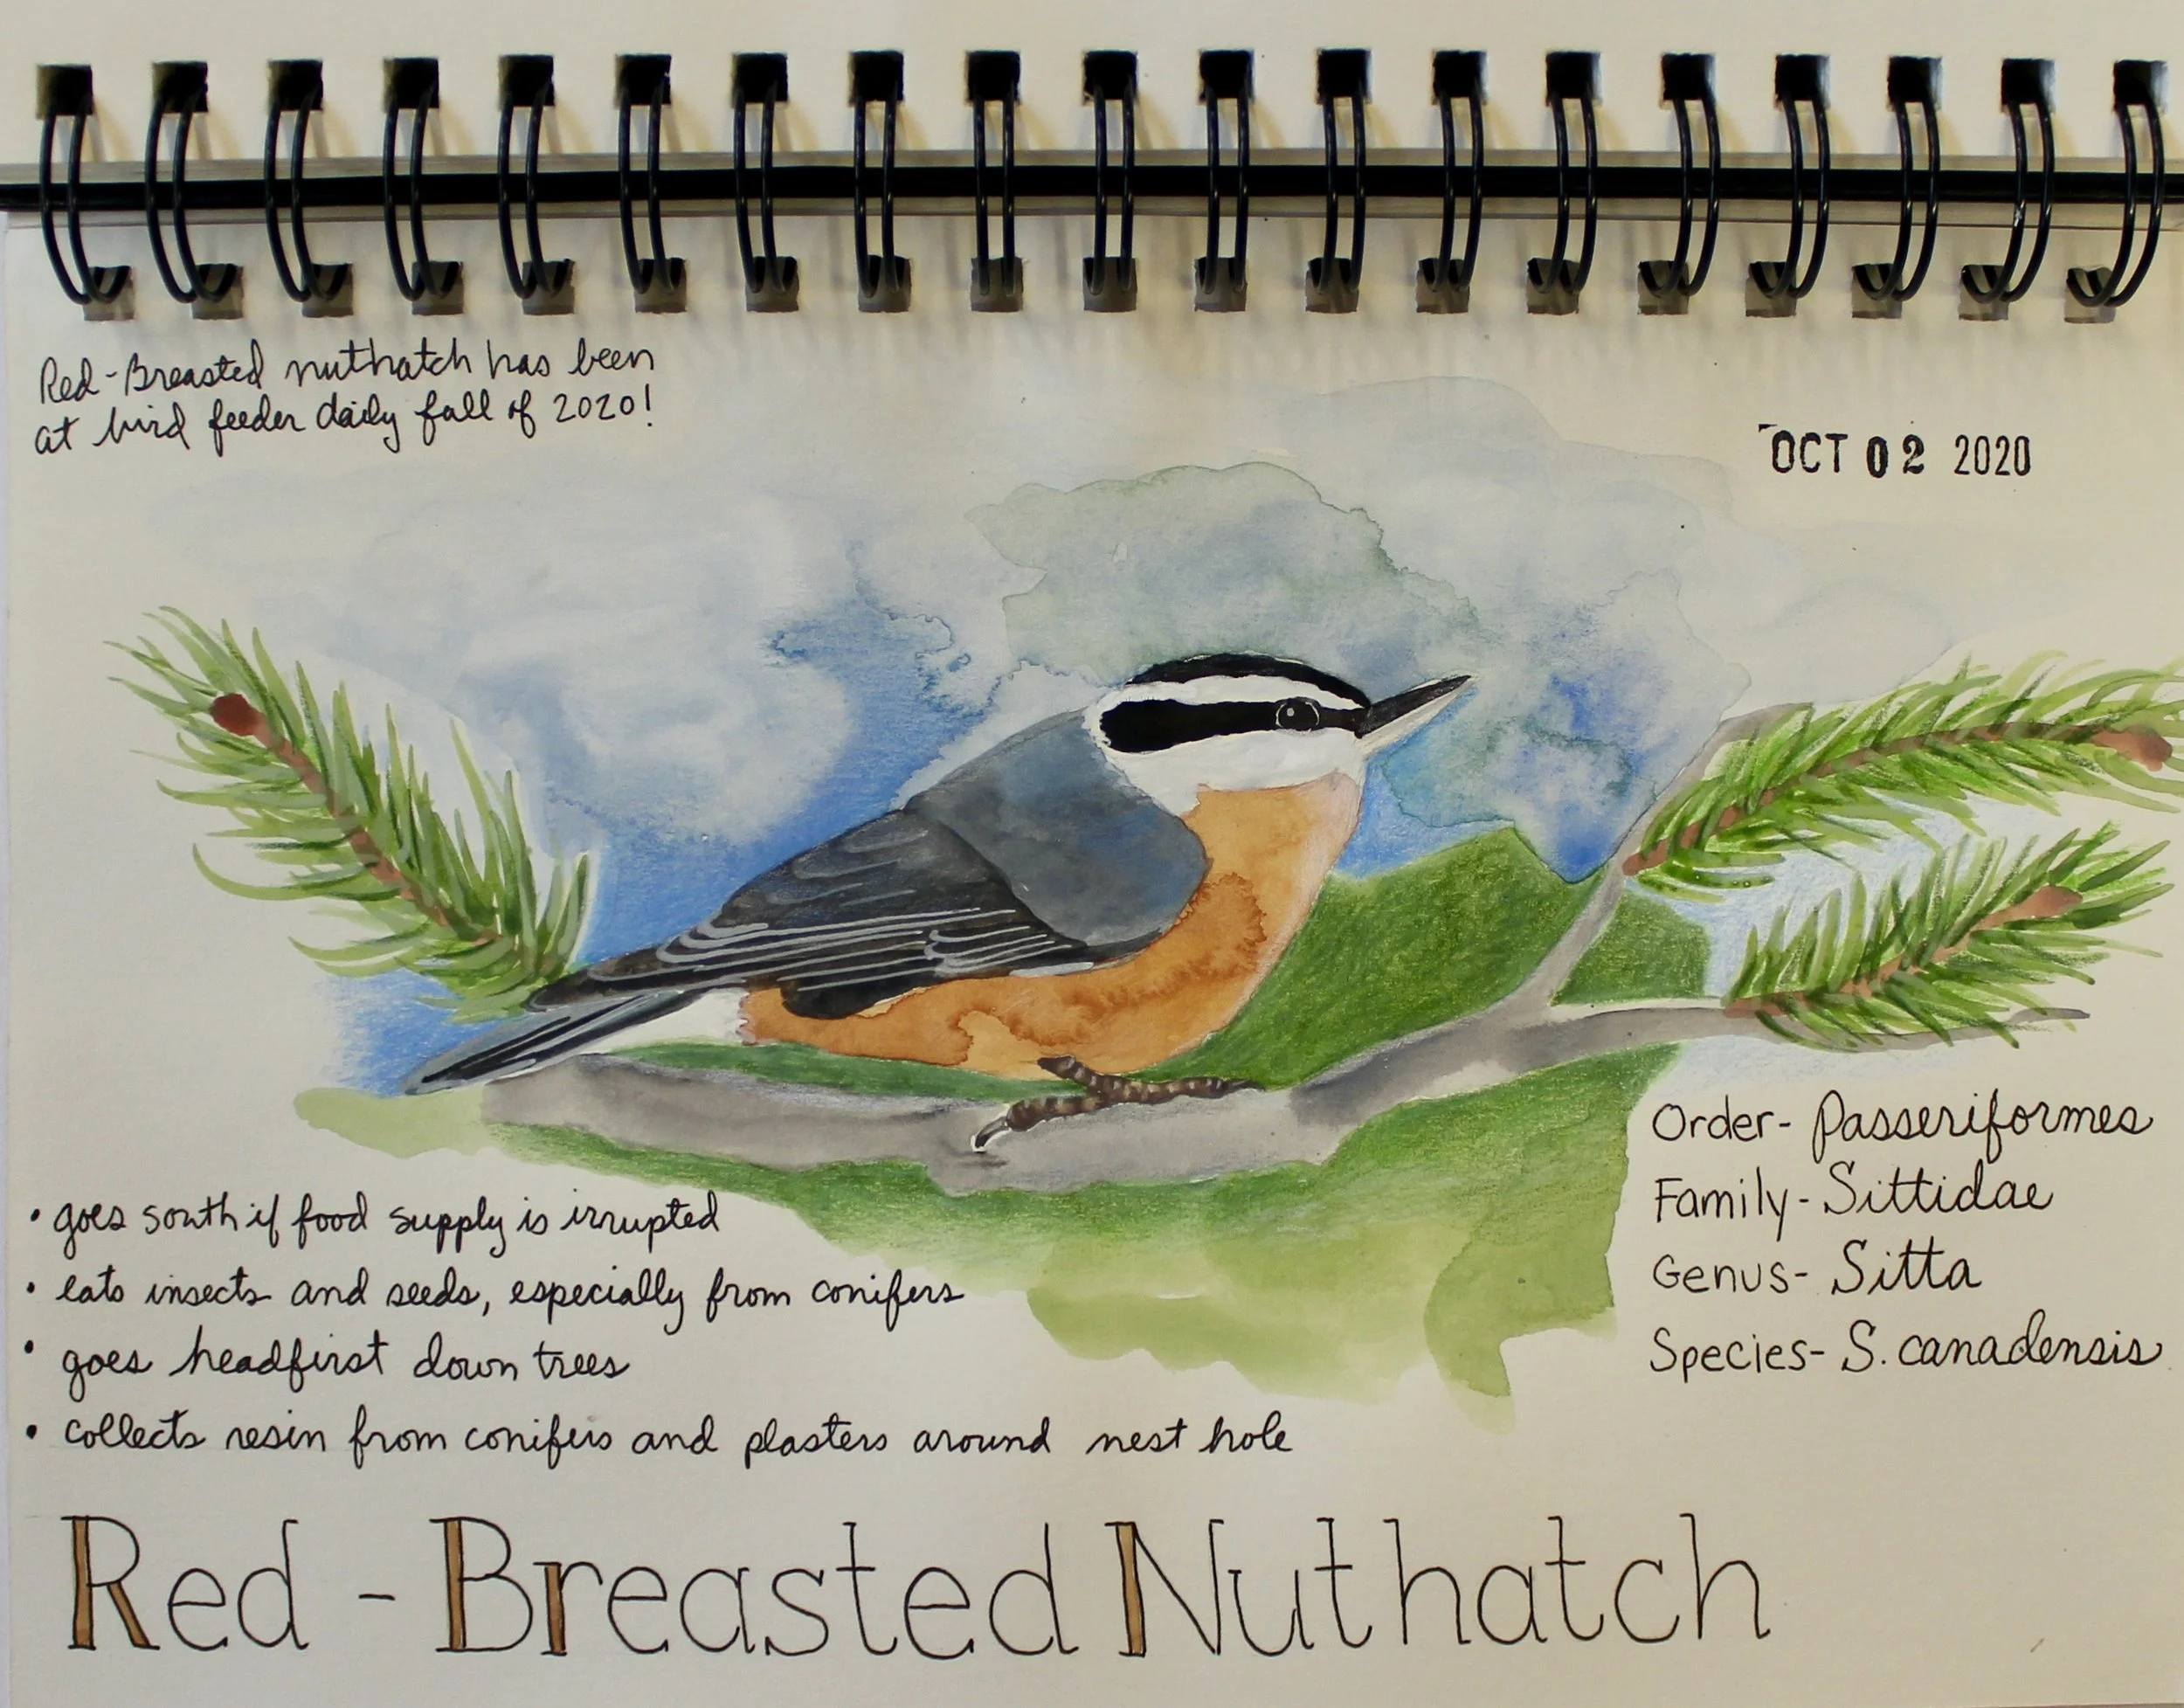 Red-Breasted nuthatch has been
at bird feeder daily fall of 2020!
OCT 02 2020
Order- Passeriformes
Family- Sittidae
Genus- Sitta
Species- S. canadensis
• goes south if food supply is irrupted
• eats insects and seeds, especially from conifers
• goes headfirst down trees
• collects resin from conifers and plasters around nest hole
Red-Breasted Nuthatch